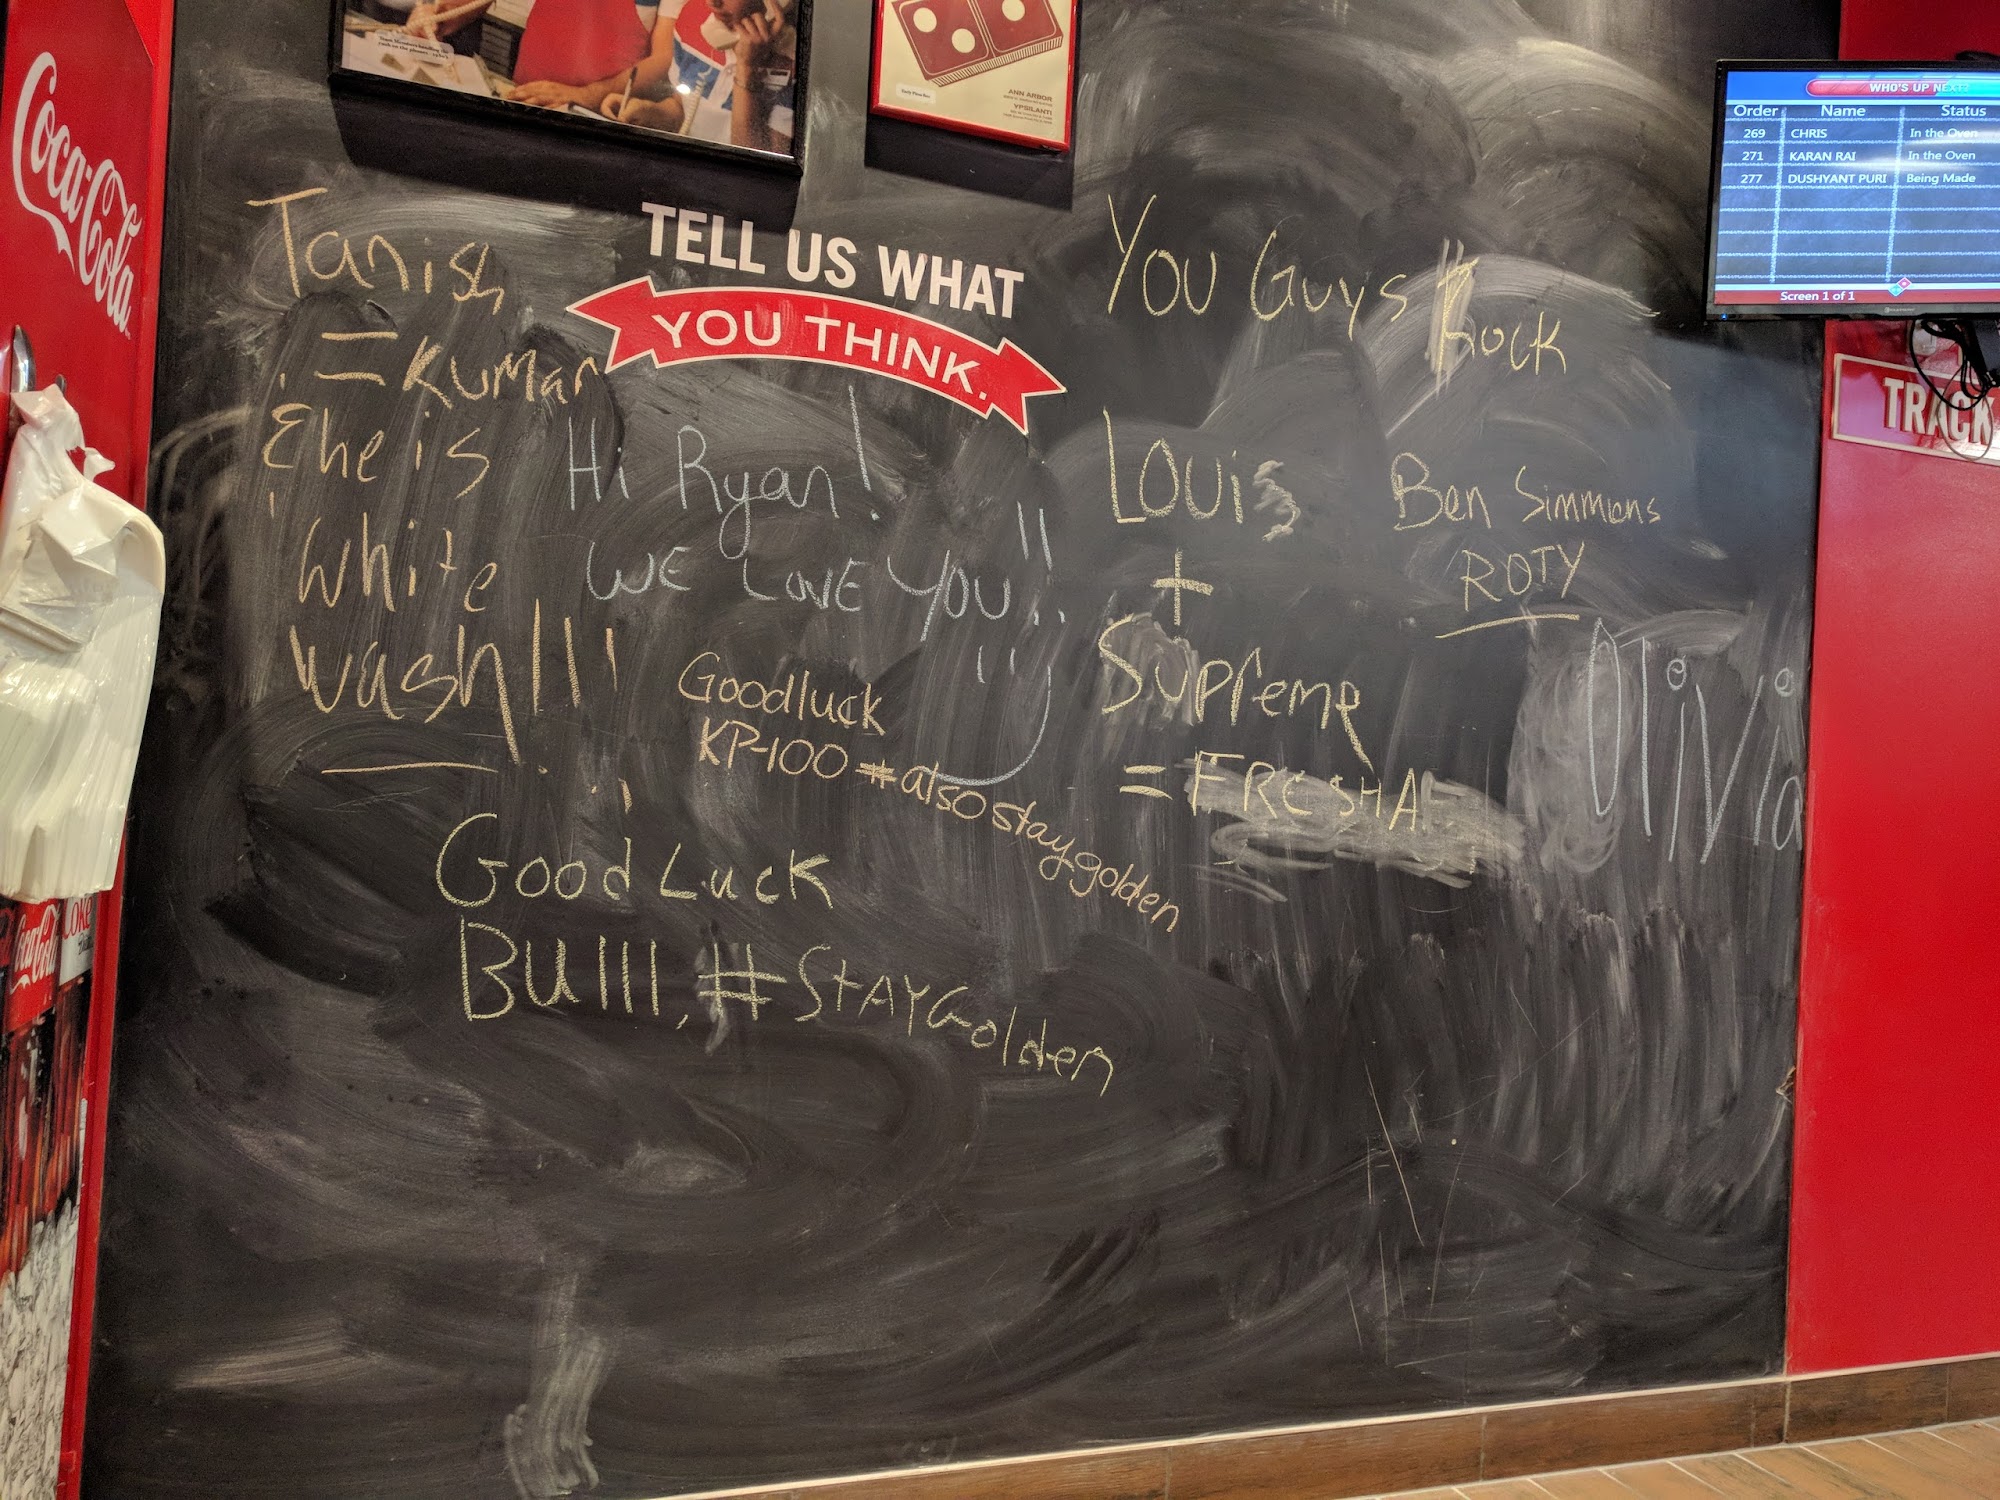 Coca-Cola
ANN ARBOR
YPSILANTI
WHO'S UP NEXT?
Order Name Status
269 CHRIS In the Oven
271 KARAN RAI In the Oven
277 DUSHYANT PURI Being Made
Screen 1 of 1
TRACK
TELL US WHAT
YOU THINK.
Tanish
= Kuman
& he is
white
wash!!!
Hi Ryan!
WE LOVE YOU!!
Goodluck
KP-100 #alsostaygolden
Good Luck
Bulll, #StAYGolden
You Guys Rock
Louis
+
Supreme
= FRESHA
Ben Simmons
ROTY
Olivia
Coca-Cola